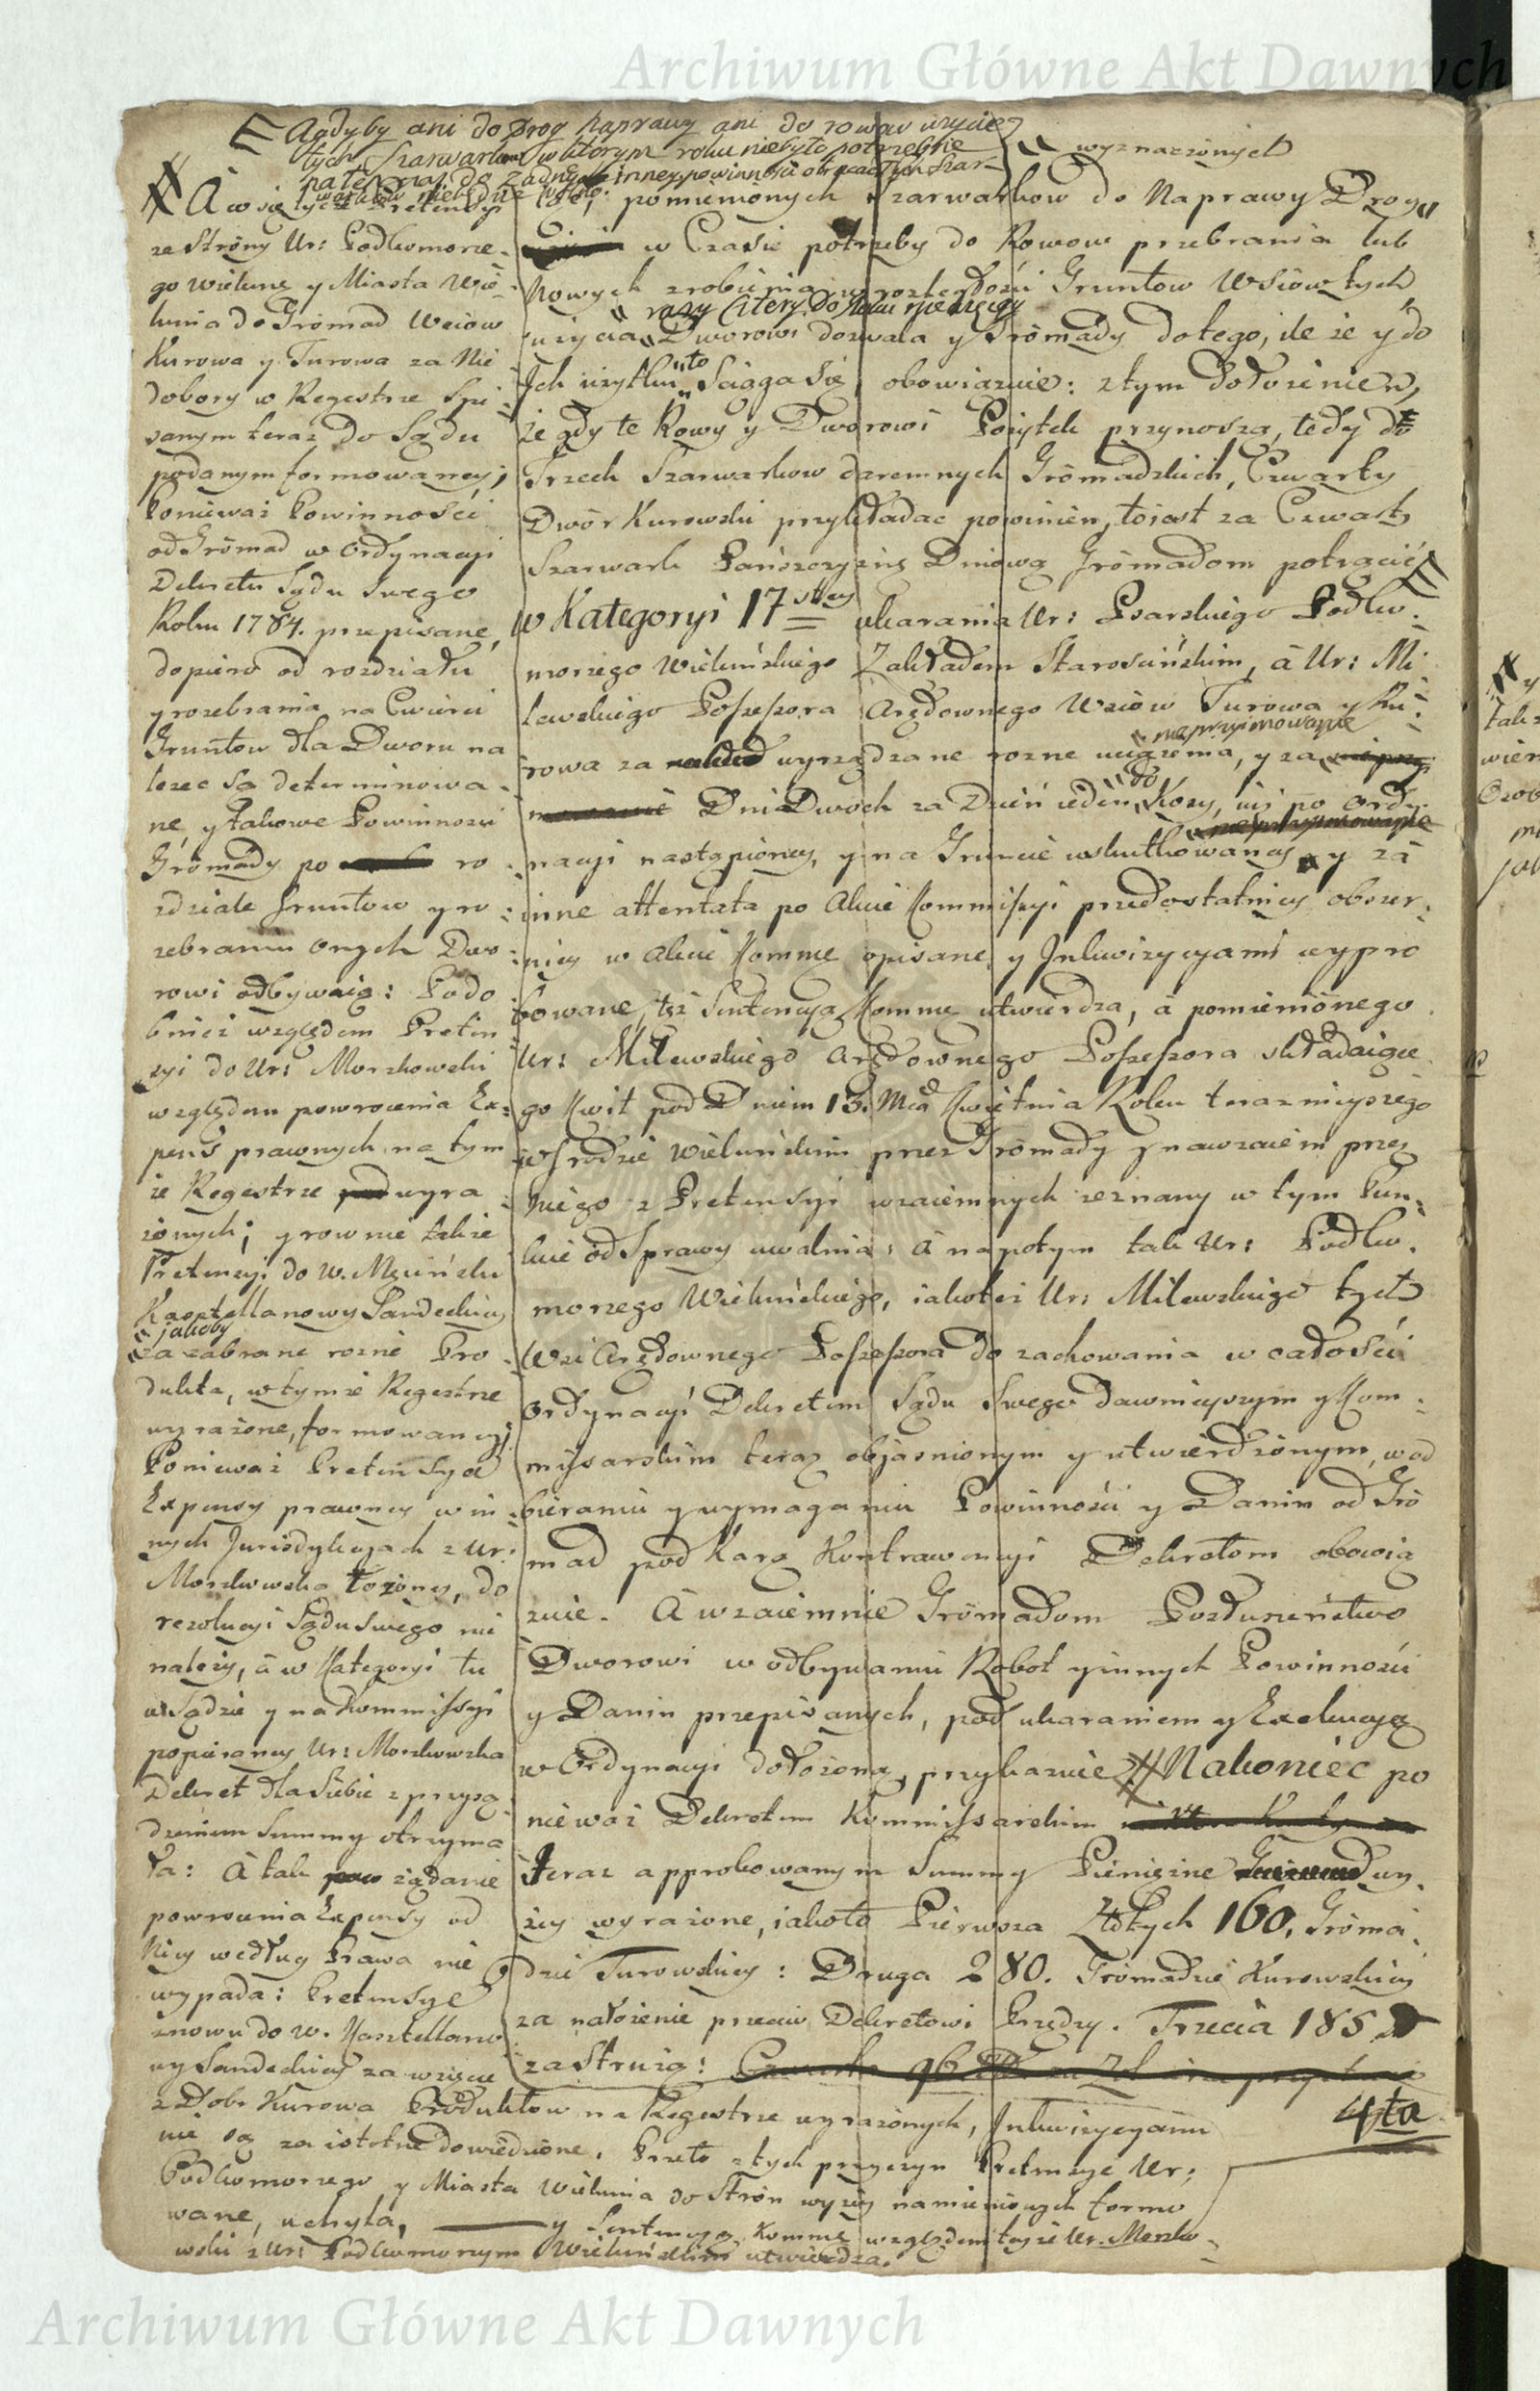 Archiwum Główne Akt Dawnych
A gdyby ani do Drog naprawy ani do rowow uzycie
tych Szarwarkow w ktorym roku niebyło potrzebne
na ten czas do zadney inney powinnosci obracać tych Szar-
warkow niebędzie wolno.
wyznaczonych
A w się tycze Pretensyi
ze Strony Ur: Podkomorze-
go Wielunꝫ y Miasta Wie-
lunia do Gromad Wsiow
Kurowa y Turowa za Nie
dobory w Regestrze Spi-
sanym teraz do Sądu
podanym formowaney;
Ponieważ Powinności
od Gromad w Ordynacyi
Dekretu Sądu Swego
Roku 1784. przepisane,
dopiero od rozdziału
y rozebrania na Cwierci
Gruntow dla Dworu na
lezec są determinowa-
ne, y takowe Powinnosci
Gromady po ro-
zdziale Gruntow y ro-
zebraniu onych Dwo-
rowi odbywaią: Podo
bnież względem Preten
syi do Ur: Morzkowski
względem powrocenia Ex-
pens prawnych na tym
że Regestrze wyra
żonych; y rownie także
Pretensyi do W. Męcińsku
Kasztellanowy Sandeckiey
jakoby
za zabrane rozne Pro-
dukta, w tymże Regestrze
wyrażone, formowaney;
Ponieważ Pretensya
Expensy prawney w in-
nych Jurisdykcyach z Ur:
Morzkowską łożoney, do
rezolucyi Sądu Swego nie
należy, a w Kategoryi tu
w Sądzie y na Kommissyi
popieraney Ur: Morzkowska
Dekret dla Siebie z przysą
dzeniem Summy otrzyma
ła: A tak żądanie
powrocenia Expensy od
Niey według Prawa nie
wypada: Pretensye
znowu do W. Kasztellano
wy Sandeckiey za wzięcie
z Dobr Kurowa Produktow na Regestrze wyrażonych, Inkwizycyami
nie są za istotne dowiedzione. Przeto z tych przyczyn Pretensye Ur:
Podkomorzego y Miasta Wielunia do Stron wyżey namienionych formo
wane, uchyla, y Sentencyą Kommꝫ względem teyże Ur. Morzko-
wski z Ur: Podkomorzym Wieluńskim utwierdza.
pomienionych Szarwarkow do Naprawy Drog
w Czasie potrzeby do Rowow przebrania lub
Nowych zrobienia w rozległości Gruntow Wsiow tych
razy cztery do roku
uzycia Dworowi dozwala y Gromady do tego, ile że y do
Jch uzytku to Sciąga się, obowiązuie: z tym dołożeniem,
że gdy te Rowy y Dworowi Pożytek przynoszą, tedy do
Trzech Szarwarkow daremnych Gromadzkich, Czwarty
Dwor Kurowski przykładac powinien, toiest za Czwarty
Szarwark Pańszczyznę Dniową Gromadom potrącić
w Kategoryi 17stey ukarania Ur: Psarskiego Podko-
morzego Wieluńskiego Zakładem Starościńskim, a Ur: Mi-
lewskiego Possessora Arędownego Wsiow Turowa y Ku-
nieprzyimowanie
rowa za wyrządzane rozne uciążenia, y za
Dni Dwoch za Dzień ieden do Kosy, iuż po Ordy-
nacyi nastąpioney, y na Gruncie uskutkowaney, y za
inne attentata po Akcie Kommissyi przedostatniey obszer-
niey w Akcie Kommꝫ opisane y Inkwizycyami wypro
bowane, tęż Sentencyą Kommꝫ utwierdza, a pomienionego
Ur: Milewskiego Arędownego Possessora składaiące-
go Kwit pod Dniem 13. Mca Kwietnia Roku teraznieyszego
w Grodzie Wieluńskim przez Gromady y nawzaiem przez
Niego z Pretensyi wzaiemnych zeznany w tym Pun-
kcie od Sprawy uwalnia: a napotym tak Ur: Podko-
morzego Wieluńskiego, iakoteż Ur: Milewskiego tych
Wsi Arędownego Possessora do zachowania w całości
Ordynacyi Dekretem Sądu Swego dawnieyszym y Kom-
missarskim teraz objasnionym y utwierdzonym, w od
bieraniu y wymaganiu Powinności y Danin od Gro
mad pod Karą Kontrawencyi Dekretom obowią
zuie. A wzaiemnie Gromadom Posłuszeństwo
Dworowi w odbywaniu Robot y innych Powinnosci
y Danin przepisanych, pod ukaraniem y Exekucyą
w Ordynacyi dołożoną, przykazuie. Nakoniec po
nieważ Dekretem Kommissarskim
teraz approbowanym Summy Pieniężne wy-
żey wyrażone, iakoto Pierwsza Złotych 160. Groma-
dzie Turowskiey: Druga 280. Gromadzie Kurowskiey
za nałożenie przeciw Dekretowi Przędzy. Trzecia 185
za Strużą:
4ta
Archiwum Główne Akt Dawnych